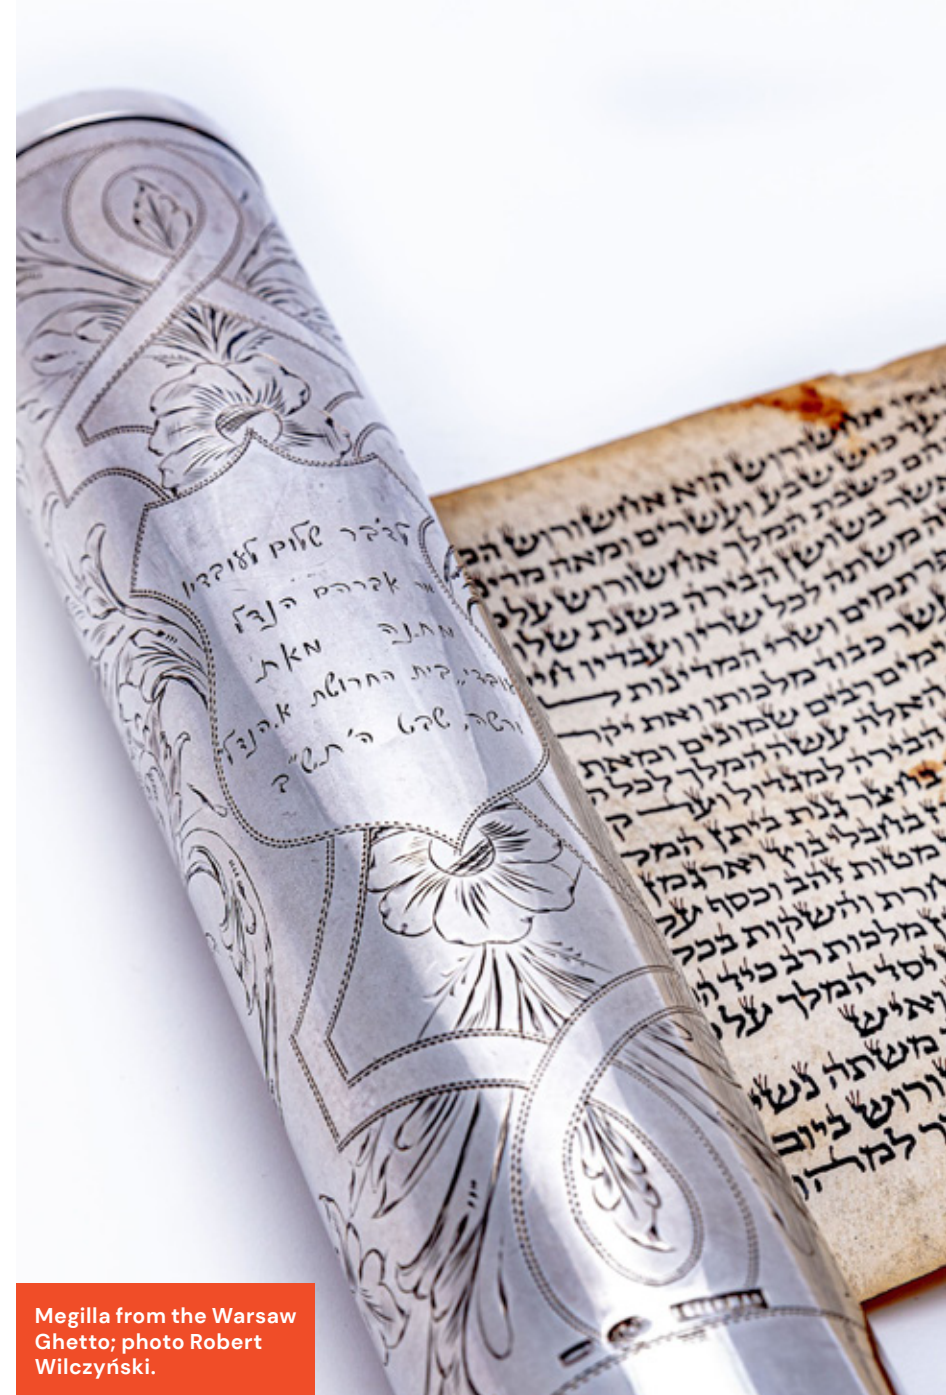 לדבר שלום לעובדיו
מר אברהם הנדל
מתנה מאת
עובדי „בית החרושת א. הנדל"
ורשה, שבט ה'תש"ב
אחשורוש הוא אחשורוש
ועד כוש שבע ועשרים ומאה
ההם כשבת המלך אחשורוש על
אשר בשושן הבירה בשנת
משתה לכל שריו ועבדיו
הפרתמים ושרי המדינות
עשר כבוד מלכותו ואת יקר
ימים רבים שמונים ומאת
האלה עשה המלך לכל
הבירה למגדול ועד ק
בחצר גנת ביתן
בחבלי בוץ וארגמן
מטות זהב וכסף על
והשקות
מלכות רב כיד
יסד המלך על
ואיש
משתה
ביום
Megilla from the Warsaw
Ghetto; photo Robert
Wilczyński.